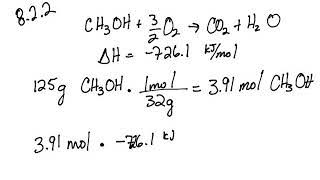 8.2.2
CH3OH + 3/2 O2 → CO2 + H2O
ΔH = -726.1 kJ/mol
125g CH3OH · 1mol/32g = 3.91 mol CH3OH
3.91 mol · -726.1 kJ